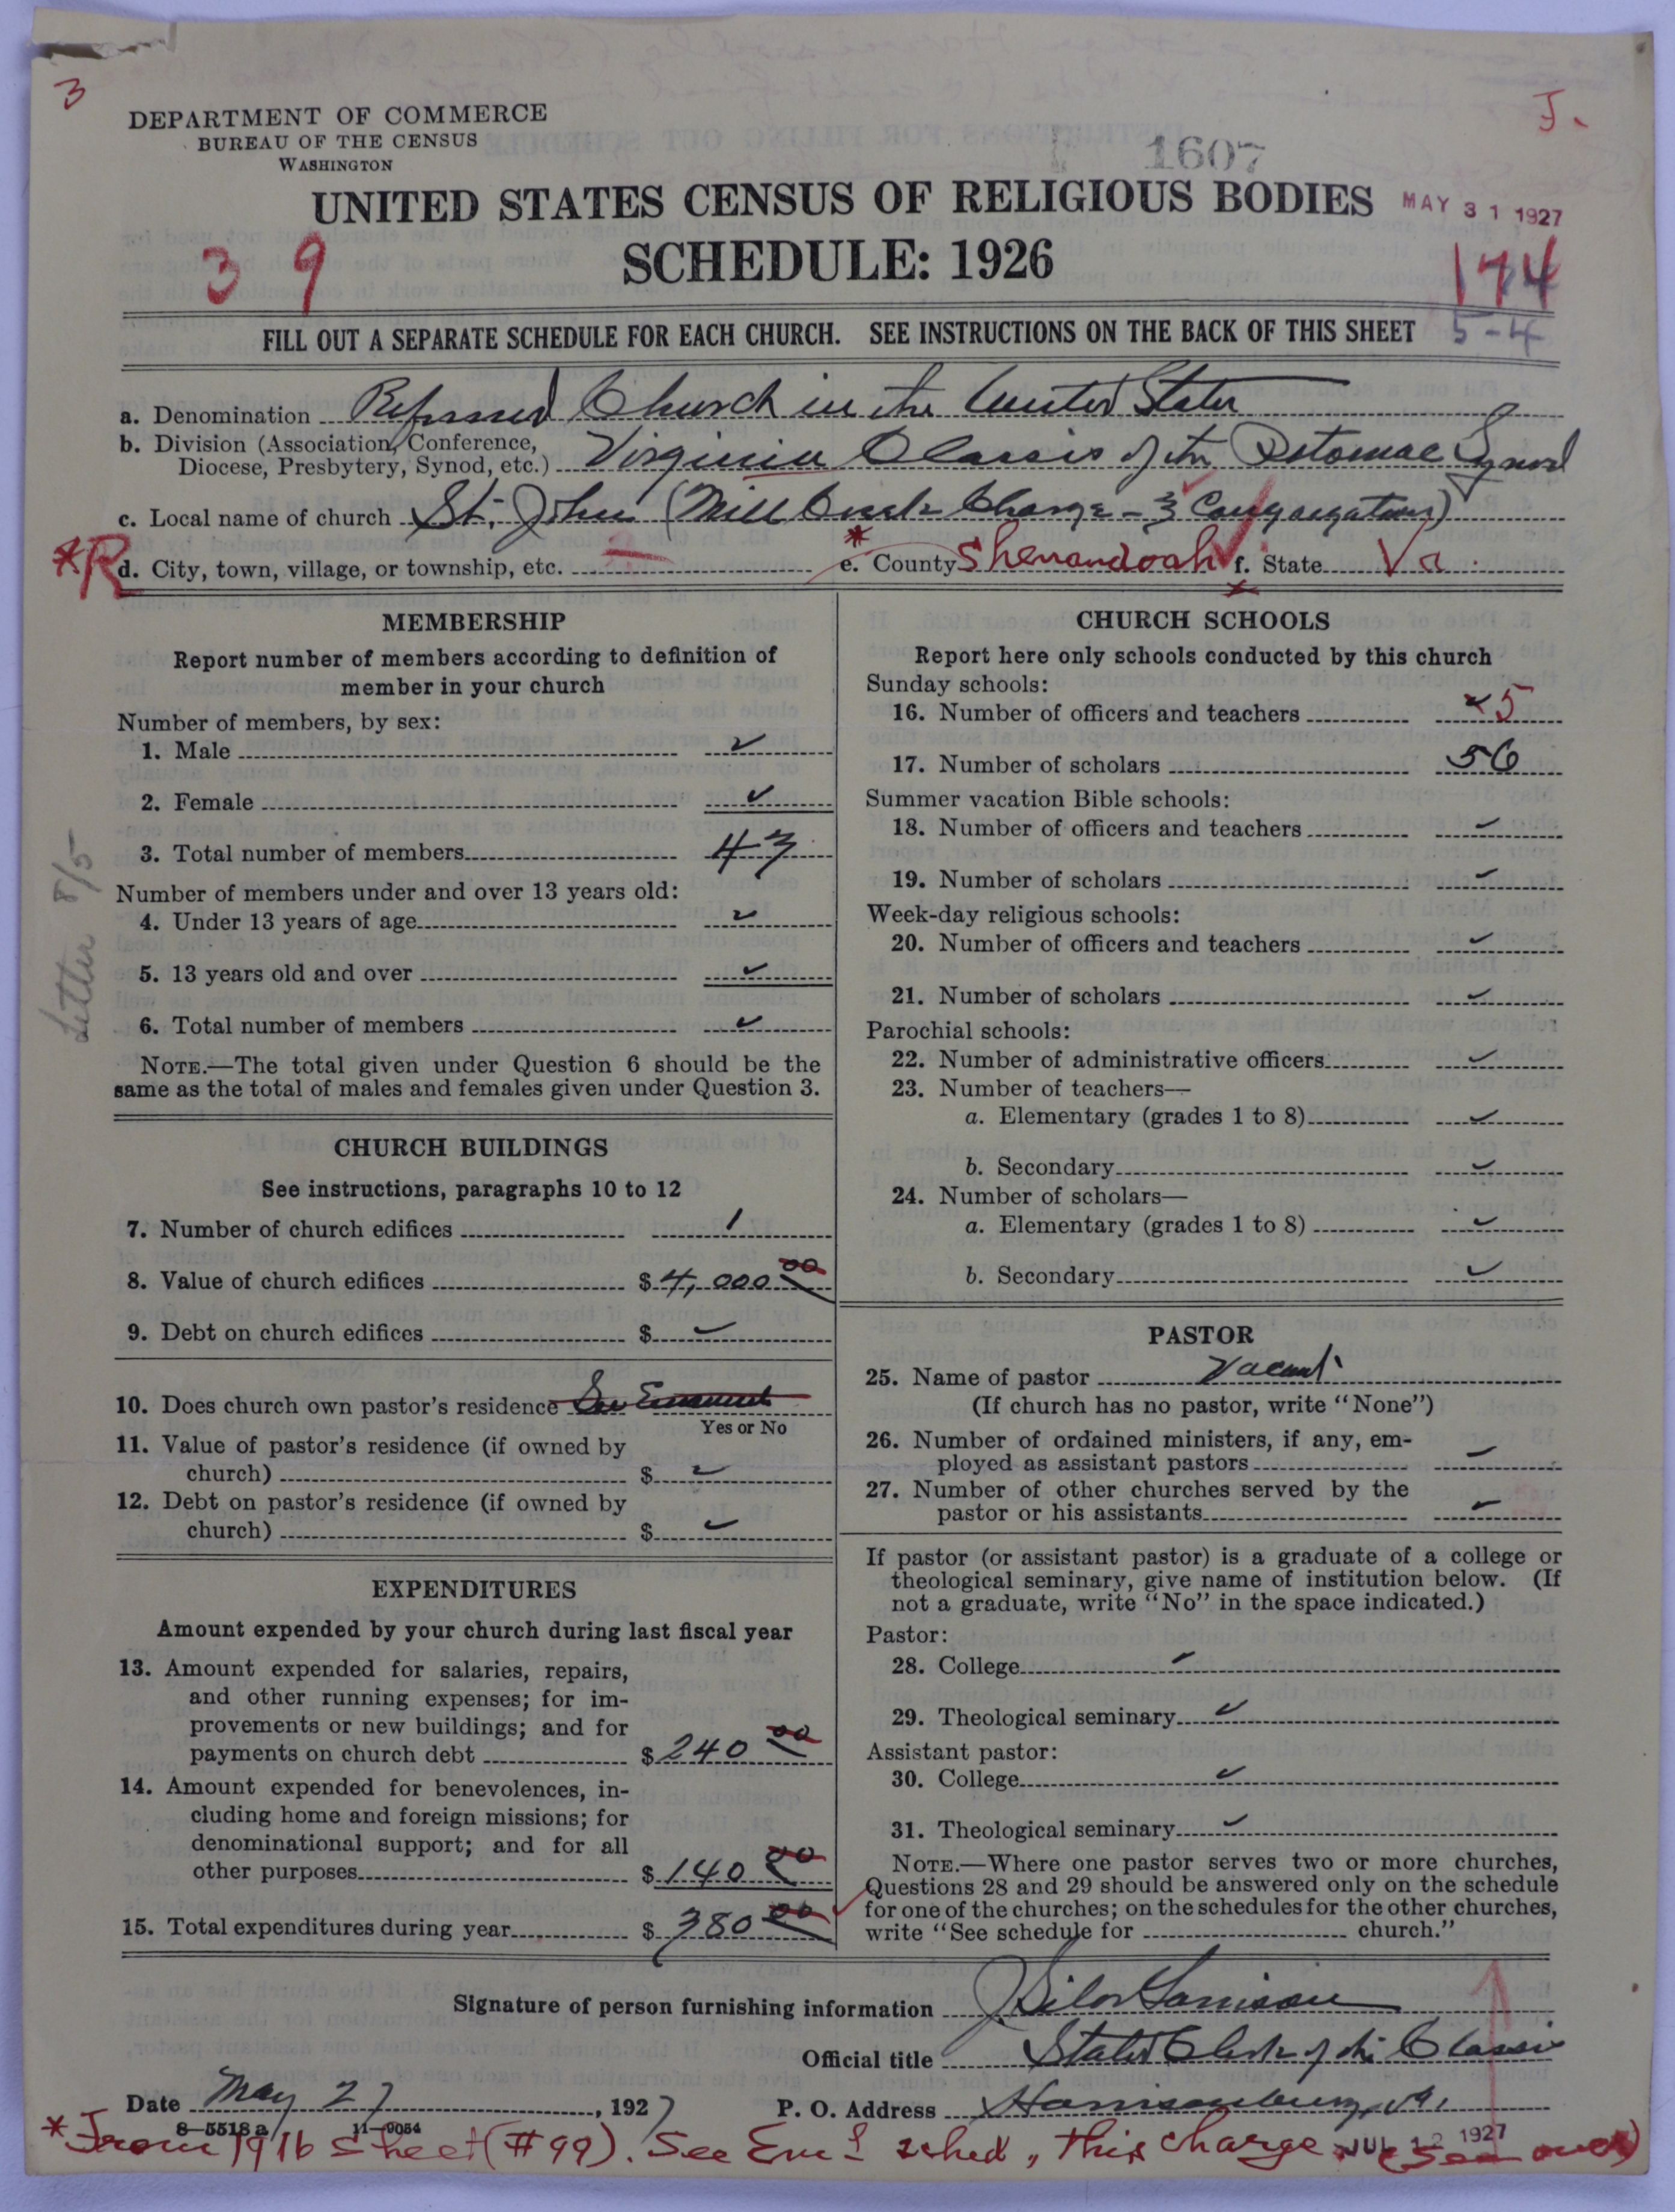 3
J.
DEPARTMENT OF COMMERCE
BUREAU OF THE CENSUS
WASHINGTON
1607
UNITED STATES CENSUS OF RELIGIOUS BODIES
MAY 31 1927
3 9
SCHEDULE: 1926
174
FILL OUT A SEPARATE SCHEDULE FOR EACH CHURCH. SEE INSTRUCTIONS ON THE BACK OF THIS SHEET
5-4
a. Denomination Reformed Church in the United States
b. Division (Association, Conference, Diocese, Presbytery, Synod, etc.) Virginia Classis of the Potomac Synod
c. Local name of church St. John (Mill Creek Charge - 3 Congregations)
*R d. City, town, village, or township, etc. * e. County Shenandoah f. State Va.
MEMBERSHIP
Report number of members according to definition of
member in your church
Number of members, by sex:
1. Male ✓
2. Female ✓
3. Total number of members 43
Number of members under and over 13 years old:
4. Under 13 years of age ✓
5. 13 years old and over ✓
6. Total number of members ✓
NOTE.—The total given under Question 6 should be the
same as the total of males and females given under Question 3.
Letter 8/5
CHURCH BUILDINGS
See instructions, paragraphs 10 to 12
7. Number of church edifices 1
8. Value of church edifices $4,000 00
9. Debt on church edifices $ ✓
10. Does church own pastor's residence See Emanuel
Yes or No
11. Value of pastor's residence (if owned by
church) $ ✓
12. Debt on pastor's residence (if owned by
church) $ ✓
EXPENDITURES
Amount expended by your church during last fiscal year
13. Amount expended for salaries, repairs,
and other running expenses; for im-
provements or new buildings; and for
payments on church debt $240 00
14. Amount expended for benevolences, in-
cluding home and foreign missions; for
denominational support; and for all
other purposes $140 00
15. Total expenditures during year $380 00
CHURCH SCHOOLS
Report here only schools conducted by this church
Sunday schools:
16. Number of officers and teachers 5
17. Number of scholars 56
Summer vacation Bible schools:
18. Number of officers and teachers ✓
19. Number of scholars ✓
Week-day religious schools:
20. Number of officers and teachers ✓
21. Number of scholars ✓
Parochial schools:
22. Number of administrative officers ✓
23. Number of teachers—
a. Elementary (grades 1 to 8) ✓
b. Secondary ✓
24. Number of scholars—
a. Elementary (grades 1 to 8) ✓
b. Secondary ✓
PASTOR
25. Name of pastor Vacant
(If church has no pastor, write "None")
26. Number of ordained ministers, if any, em-
ployed as assistant pastors ✓
27. Number of other churches served by the
pastor or his assistants ✓
If pastor (or assistant pastor) is a graduate of a college or
theological seminary, give name of institution below. (If
not a graduate, write "No" in the space indicated.)
Pastor:
28. College ✓
29. Theological seminary ✓
Assistant pastor:
30. College ✓
31. Theological seminary ✓
NOTE.—Where one pastor serves two or more churches,
Questions 28 and 29 should be answered only on the schedule
for one of the churches; on the schedules for the other churches,
write "See schedule for church."
Signature of person furnishing information J. Silor Garrison
Official title Stated Clerk of the Classis
Date May 27, 1927 P. O. Address Harrisonburg, Va.
8-5518a 11-9054
JUL 12 1927
*From 1916 sheet (#99). See Em'l sched, this charge. (See over)